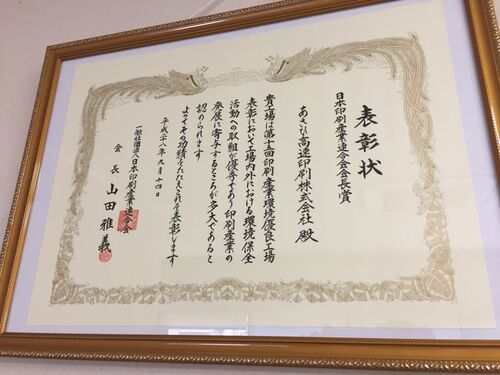 表彰状
日本印刷産業連合会会長賞
あさひ高速印刷株式会社 殿
貴工場は第十五回印刷産業環境優良工場
表彰において工場内外における環境保全
活動への取組が優秀であり印刷産業の
発展に寄与するところが多大であると
認められます
よってその功績をたたえこれを表彰します
平成二十八年九月十四日
一般社団法人日本印刷産業連合会
会長 山田雅義